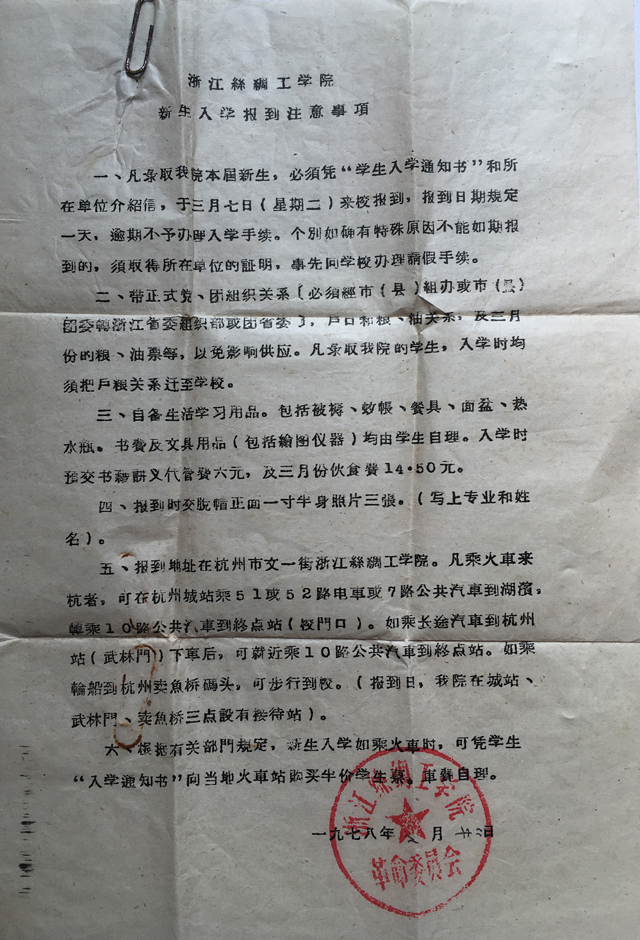 浙江絲綢工学院
新生入学报到注意事項
一、凡录取我院本届新生，必須凭“学生入学通知书”和所
在单位介紹信，于三月七日（星期二）来校报到，报到日期規定
一天，逾期不予办理入学手续。个別如确有特殊原因不能如期报
到的，須取得所在单位的証明，事先向学校办理請假手续。
二、带正式党、团組织关系〔必須經市（县）組办或市（县）
团委轉浙江省委組织部或团省委〕，戶口和粮、油关系，及三月
份的粮、油票等，以免影响供应。凡录取我院的学生，入学时均
須把戶粮关系迁至学校。
三、自备生活学习用品。包括被褥、蚊帳、餐具、面盆、热
水瓶。书費及文具用品（包括繪图仪器）均由学生自理。入学时
預交书籍讲义代管費六元，及三月份伙食費14·50元。
四、报到时交脫帽正面一寸半身照片三張。（写上专业和姓
名）。
五、报到地址在杭州市文一街浙江絲綢工学院。凡乘火車来
杭者，可在杭州城站乘51或52路电車或7路公共汽車到湖濱，
轉乘10路公共汽車到終点站（校門口）。如乘长途汽車到杭州
站（武林門）下車后，可就近乘10路公共汽車到終点站。如乘
輪船到杭州卖魚桥碼头，可步行到校。（报到日，我院在城站、
武林門、卖魚桥三点設有接待站）。
六、根据有关部門規定，新生入学如乘火車时，可凭学生
“入学通知书”向当地火車站购买半价学生票。車費自理。
浙江絲綢工学院
革命委員会
一九七八年 月 日